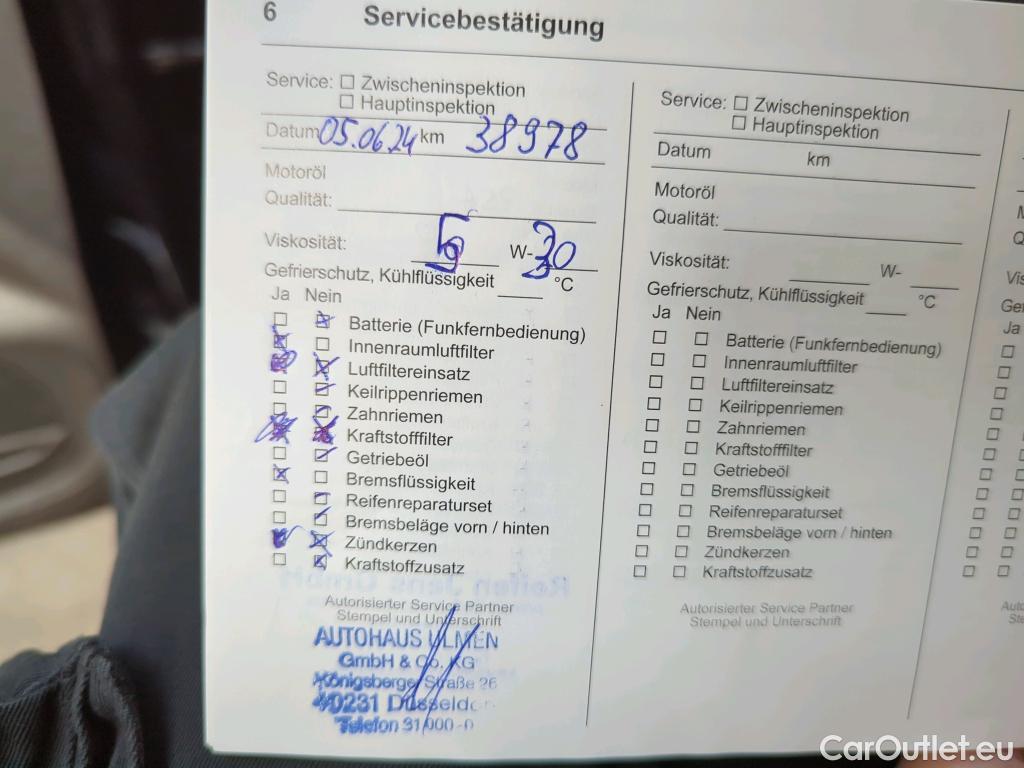 6 Servicebestätigung
Service: ☐ Zwischeninspektion
☐ Hauptinspektion
Datum 05.06.24 km 38978
Motoröl
Qualität:
Viskosität: W-30
Gefrierschutz, Kühlflüssigkeit °C
Ja Nein
Batterie (Funkfernbedienung)
Innenraumluftfilter
Luftfiltereinsatz
Keilrippenriemen
Zahnriemen
Kraftstofffilter
Getriebeöl
Bremsflüssigkeit
Reifenreparaturset
Bremsbeläge vorn / hinten
Zündkerzen
Kraftstoffzusatz
Autorisierter Service Partner
Stempel und Unterschrift
AUTOHAUS ULMEN
GmbH & Co. KG
Königsberger Straße 26
40231 Düsseldor
Telefon 31 000-0
Service: ☐ Zwischeninspektion
☐ Hauptinspektion
Datum km
Motoröl
Qualität:
Viskosität: W-
Gefrierschutz, Kühlflüssigkeit °C
Ja Nein
Batterie (Funkfernbedienung)
Innenraumluftfilter
Luftfiltereinsatz
Keilrippenriemen
Zahnriemen
Kraftstofffilter
Getriebeöl
Bremsflüssigkeit
Reifenreparaturset
Bremsbeläge vorn / hinten
Zündkerzen
Kraftstoffzusatz
Autorisierter Service Partner
Stempel und Unterschrift
Ja
CarOutlet.eu